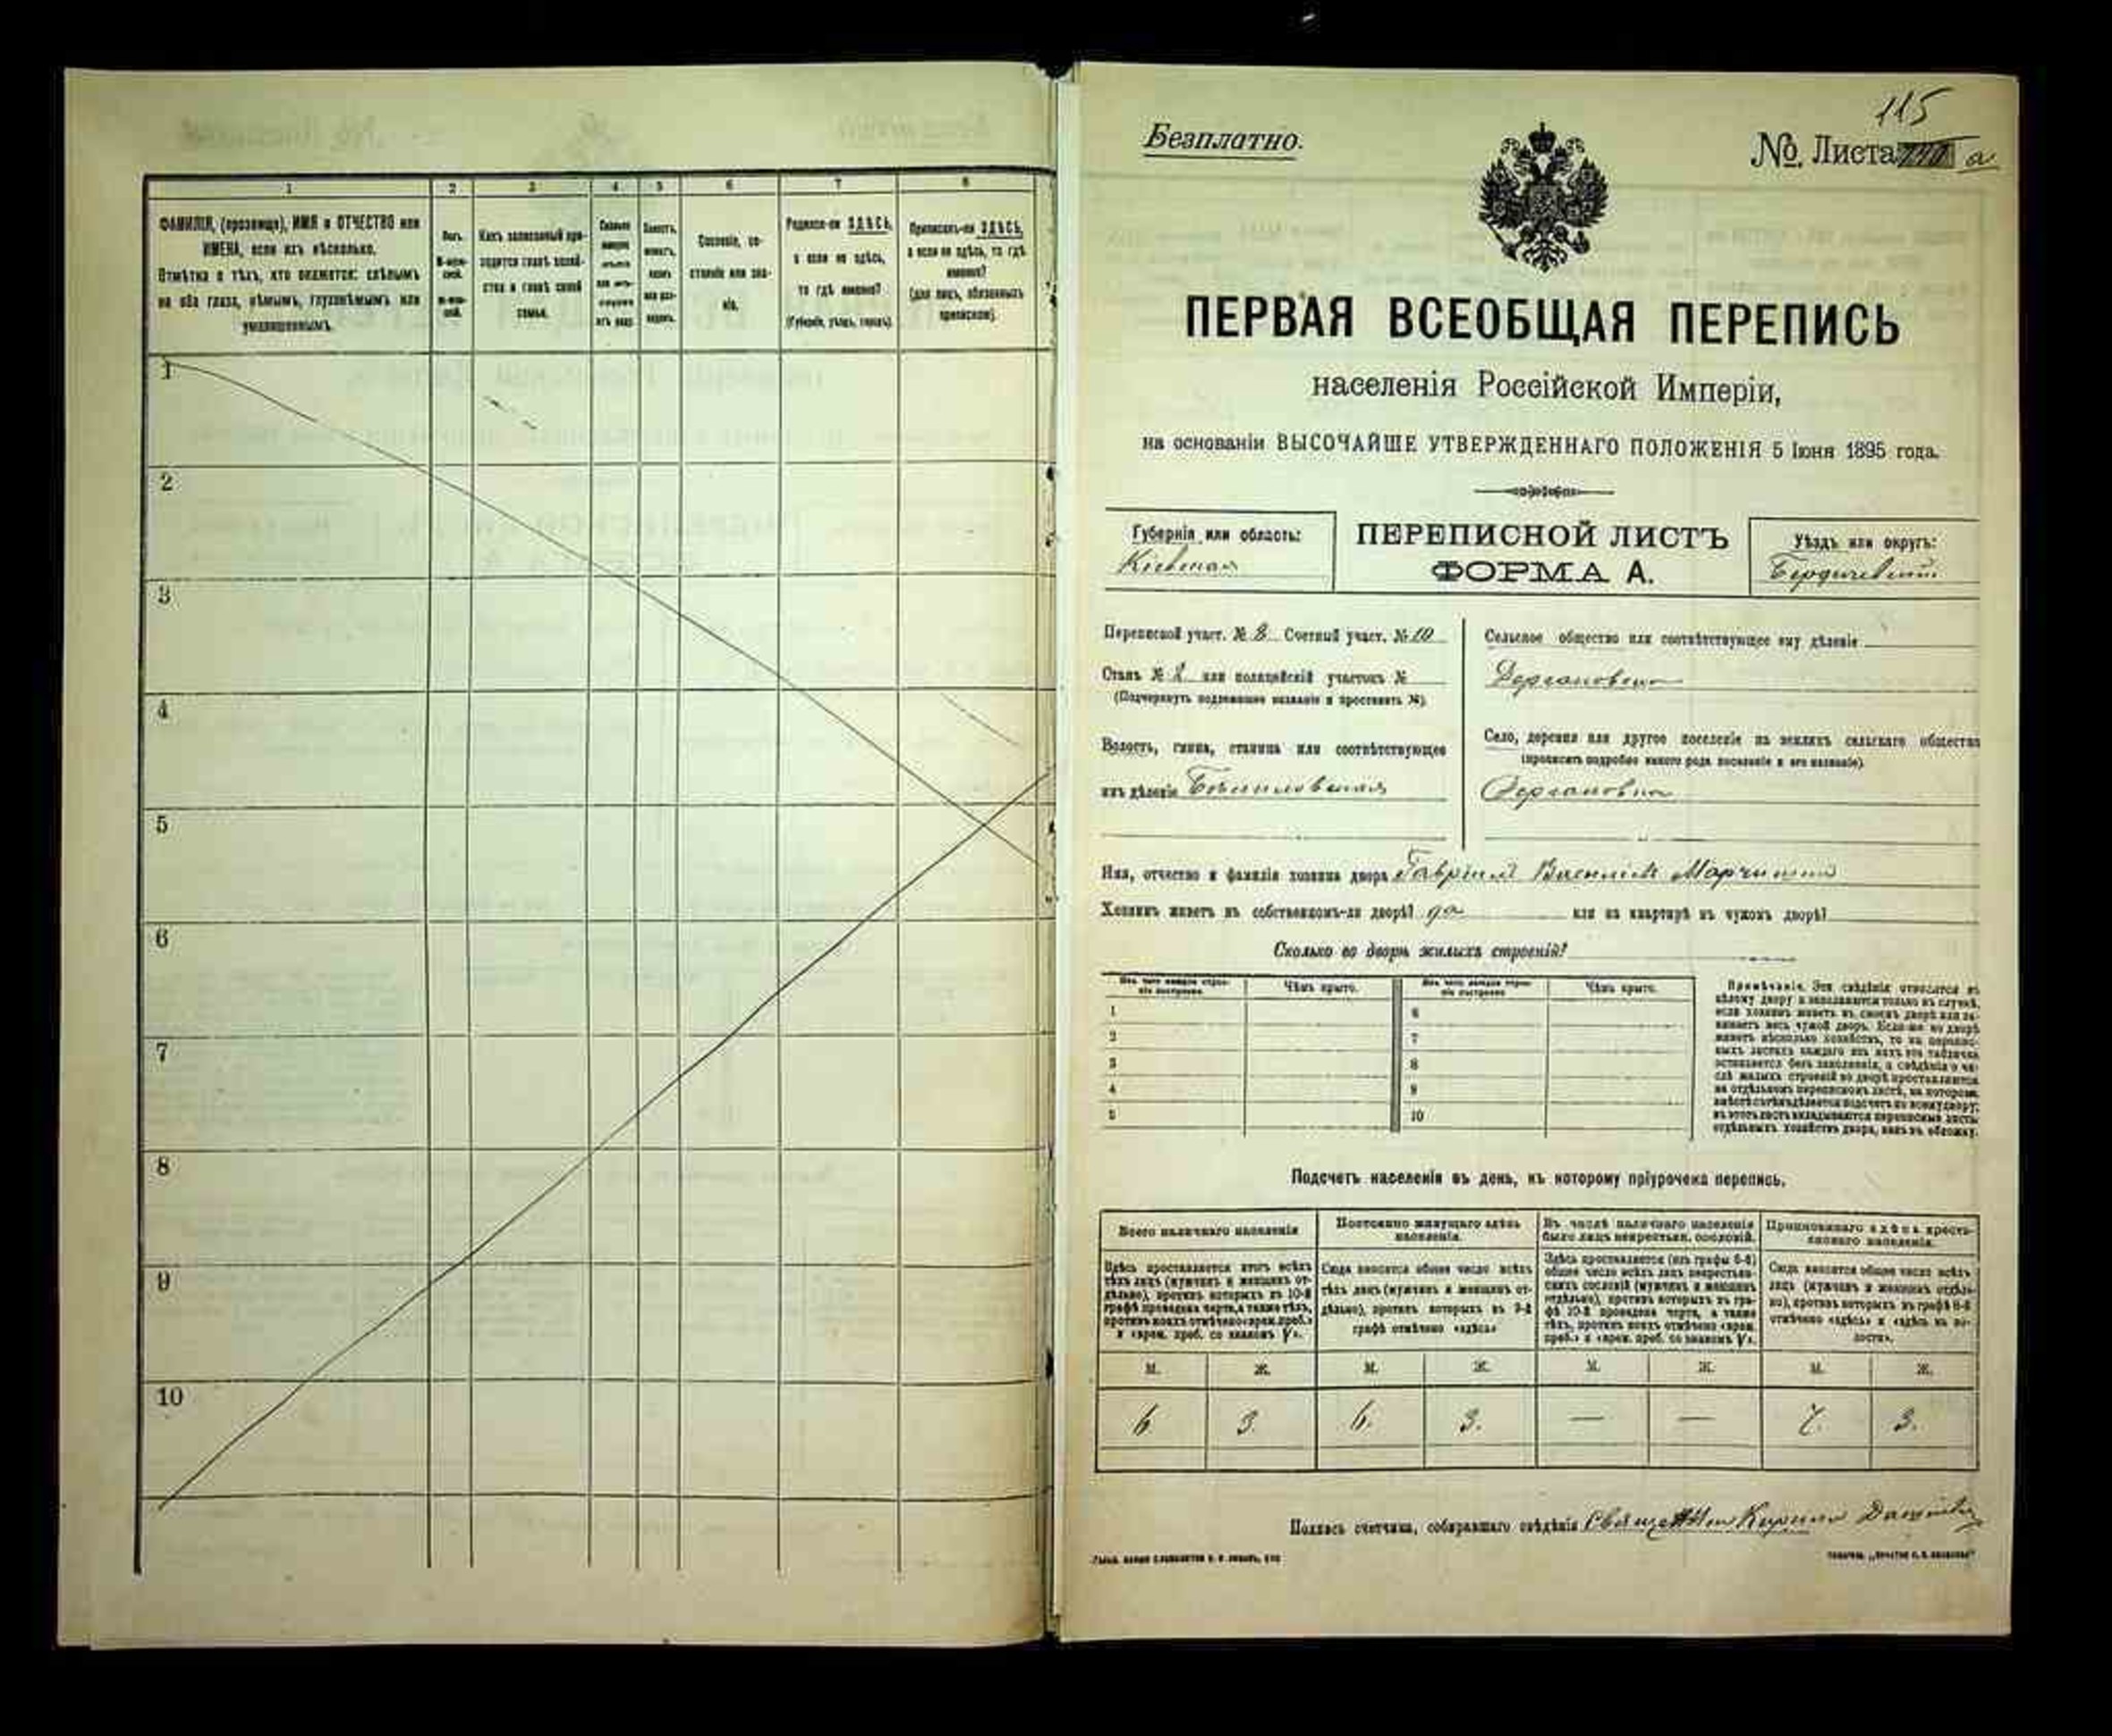 1 2 3 4 5 6 7 8
ФАМИЛІЯ, (прозвище), ИМЯ и ОТЧЕСТВО или
ИМЕНА, если ихъ нѣсколько.
Отмѣтка о тѣхъ, кто окажется: слѣпымъ
на оба глаза, нѣмымъ, глухонѣмымъ или
умалишеннымъ.
Полъ.
Какъ записанный при-
ходится главѣ хозяй-
ства и главѣ своей
семьи.
Сословіе, со-
стояніе или зва-
ніе.
Родился-ли ЗДѢСЬ,
а если не здѣсь,
то гдѣ именно?
(Губернія, уѣздъ, городъ).
Приписанъ-ли ЗДѢСЬ,
а если не здѣсь, то гдѣ
именно?
(для лицъ, обязанныхъ
припискою).
1
2
3
4
5
6
7
8
9
10
115
Безплатно.
№ Листа а
ПЕРВАЯ ВСЕОБЩАЯ ПЕРЕПИСЬ
населенія Россійской Имперіи,
на основаніи ВЫСОЧАЙШЕ УТВЕРЖДЕННАГО ПОЛОЖЕНІЯ 5 Іюня 1895 года.
Губернія или область:
Кіевская
ПЕРЕПИСНОЙ ЛИСТЪ
ФОРМА А.
Уѣздъ или округъ:
Бердичевскій
Переписной участ. № 8 Счетный участ. № 10
Станъ № 2 или полицейскій участокъ №
(Подчеркнуть подлежащее названіе и проставить №).
Волость, гмина, станица или соотвѣтствующее
имъ дѣленіе
Сельское общество или соотвѣтствующее ему дѣленіе
Село, деревня или другое поселеніе на земляхъ сельскаго общества
(прописать подробно какого рода поселеніе и его названіе).
Имя, отчество и фамилія хозяина двора Гавріилъ
Хозяинъ живетъ въ собственномъ-ли дворѣ? да или на квартирѣ въ чужомъ дворѣ?
Сколько во дворѣ жилыхъ строеній?
Изъ чего каждое строе-
ніе построено.
Чѣмъ крыто.
Изъ чего каждое строе-
ніе построено.
Чѣмъ крыто.
1 6
2 7
3 8
4 9
5 10
Примѣчаніе. Эти свѣдѣнія относятся къ
цѣлому двору и заполняются только въ случаѣ,
если хозяинъ живетъ въ своемъ дворѣ или за-
нимаетъ весь чужой дворъ. Если-же во дворѣ
живетъ нѣсколько хозяйствъ, то на перепис-
ныхъ листахъ каждаго изъ нихъ эта табличка
оставляется безъ заполненія, а свѣдѣнія о чи-
слѣ жилыхъ строеній во дворѣ проставляются
на отдѣльномъ переписномъ листѣ, на которомъ
въ этотъ листъ вкладываются переписные листы
отдѣльныхъ хозяйствъ двора, какъ въ обложку.
Подсчетъ населенія въ день, къ которому пріурочена перепись.
Всего наличнаго населенія
Здѣсь проставляется итогъ всѣхъ
тѣхъ лицъ (мужчинъ и женщинъ от-
дѣльно), противъ которыхъ въ 10-й
графѣ проведена черта, а также тѣхъ,
противъ коихъ отмѣчено «врем. преб.»
и «врем. преб. со знакомъ V».
Постоянно живущаго здѣсь
населенія.
Сюда вносится общее число всѣхъ
тѣхъ лицъ (мужчинъ и женщинъ от-
дѣльно), противъ которыхъ въ 9-й
графѣ отмѣчено «здѣсь»
Въ числѣ наличнаго населенія
было лицъ некрестьян. сословій.
Здѣсь проставляется (изъ графы 6-й)
общее число всѣхъ лицъ некрестьян-
скихъ сословій (мужчинъ и женщинъ
отдѣльно), противъ которыхъ въ гра-
фѣ 10-й проведена черта, а также
тѣхъ, противъ коихъ отмѣчено «врем.
преб.» и «врем. преб. со знакомъ V».
Приписаннаго здѣсь кресть-
янскаго населенія.
Сюда вносится общее число всѣхъ
лицъ (мужчинъ и женщинъ отдѣль-
но), противъ которыхъ въ графѣ 8-й
отмѣчено «здѣсь» и «здѣсь въ во-
лости».
М. Ж. М. Ж. М. Ж. М. Ж.
6. 3. 6. 3. — — 7. 3.
Подпись счетчика, собиравшаго свѣдѣнія